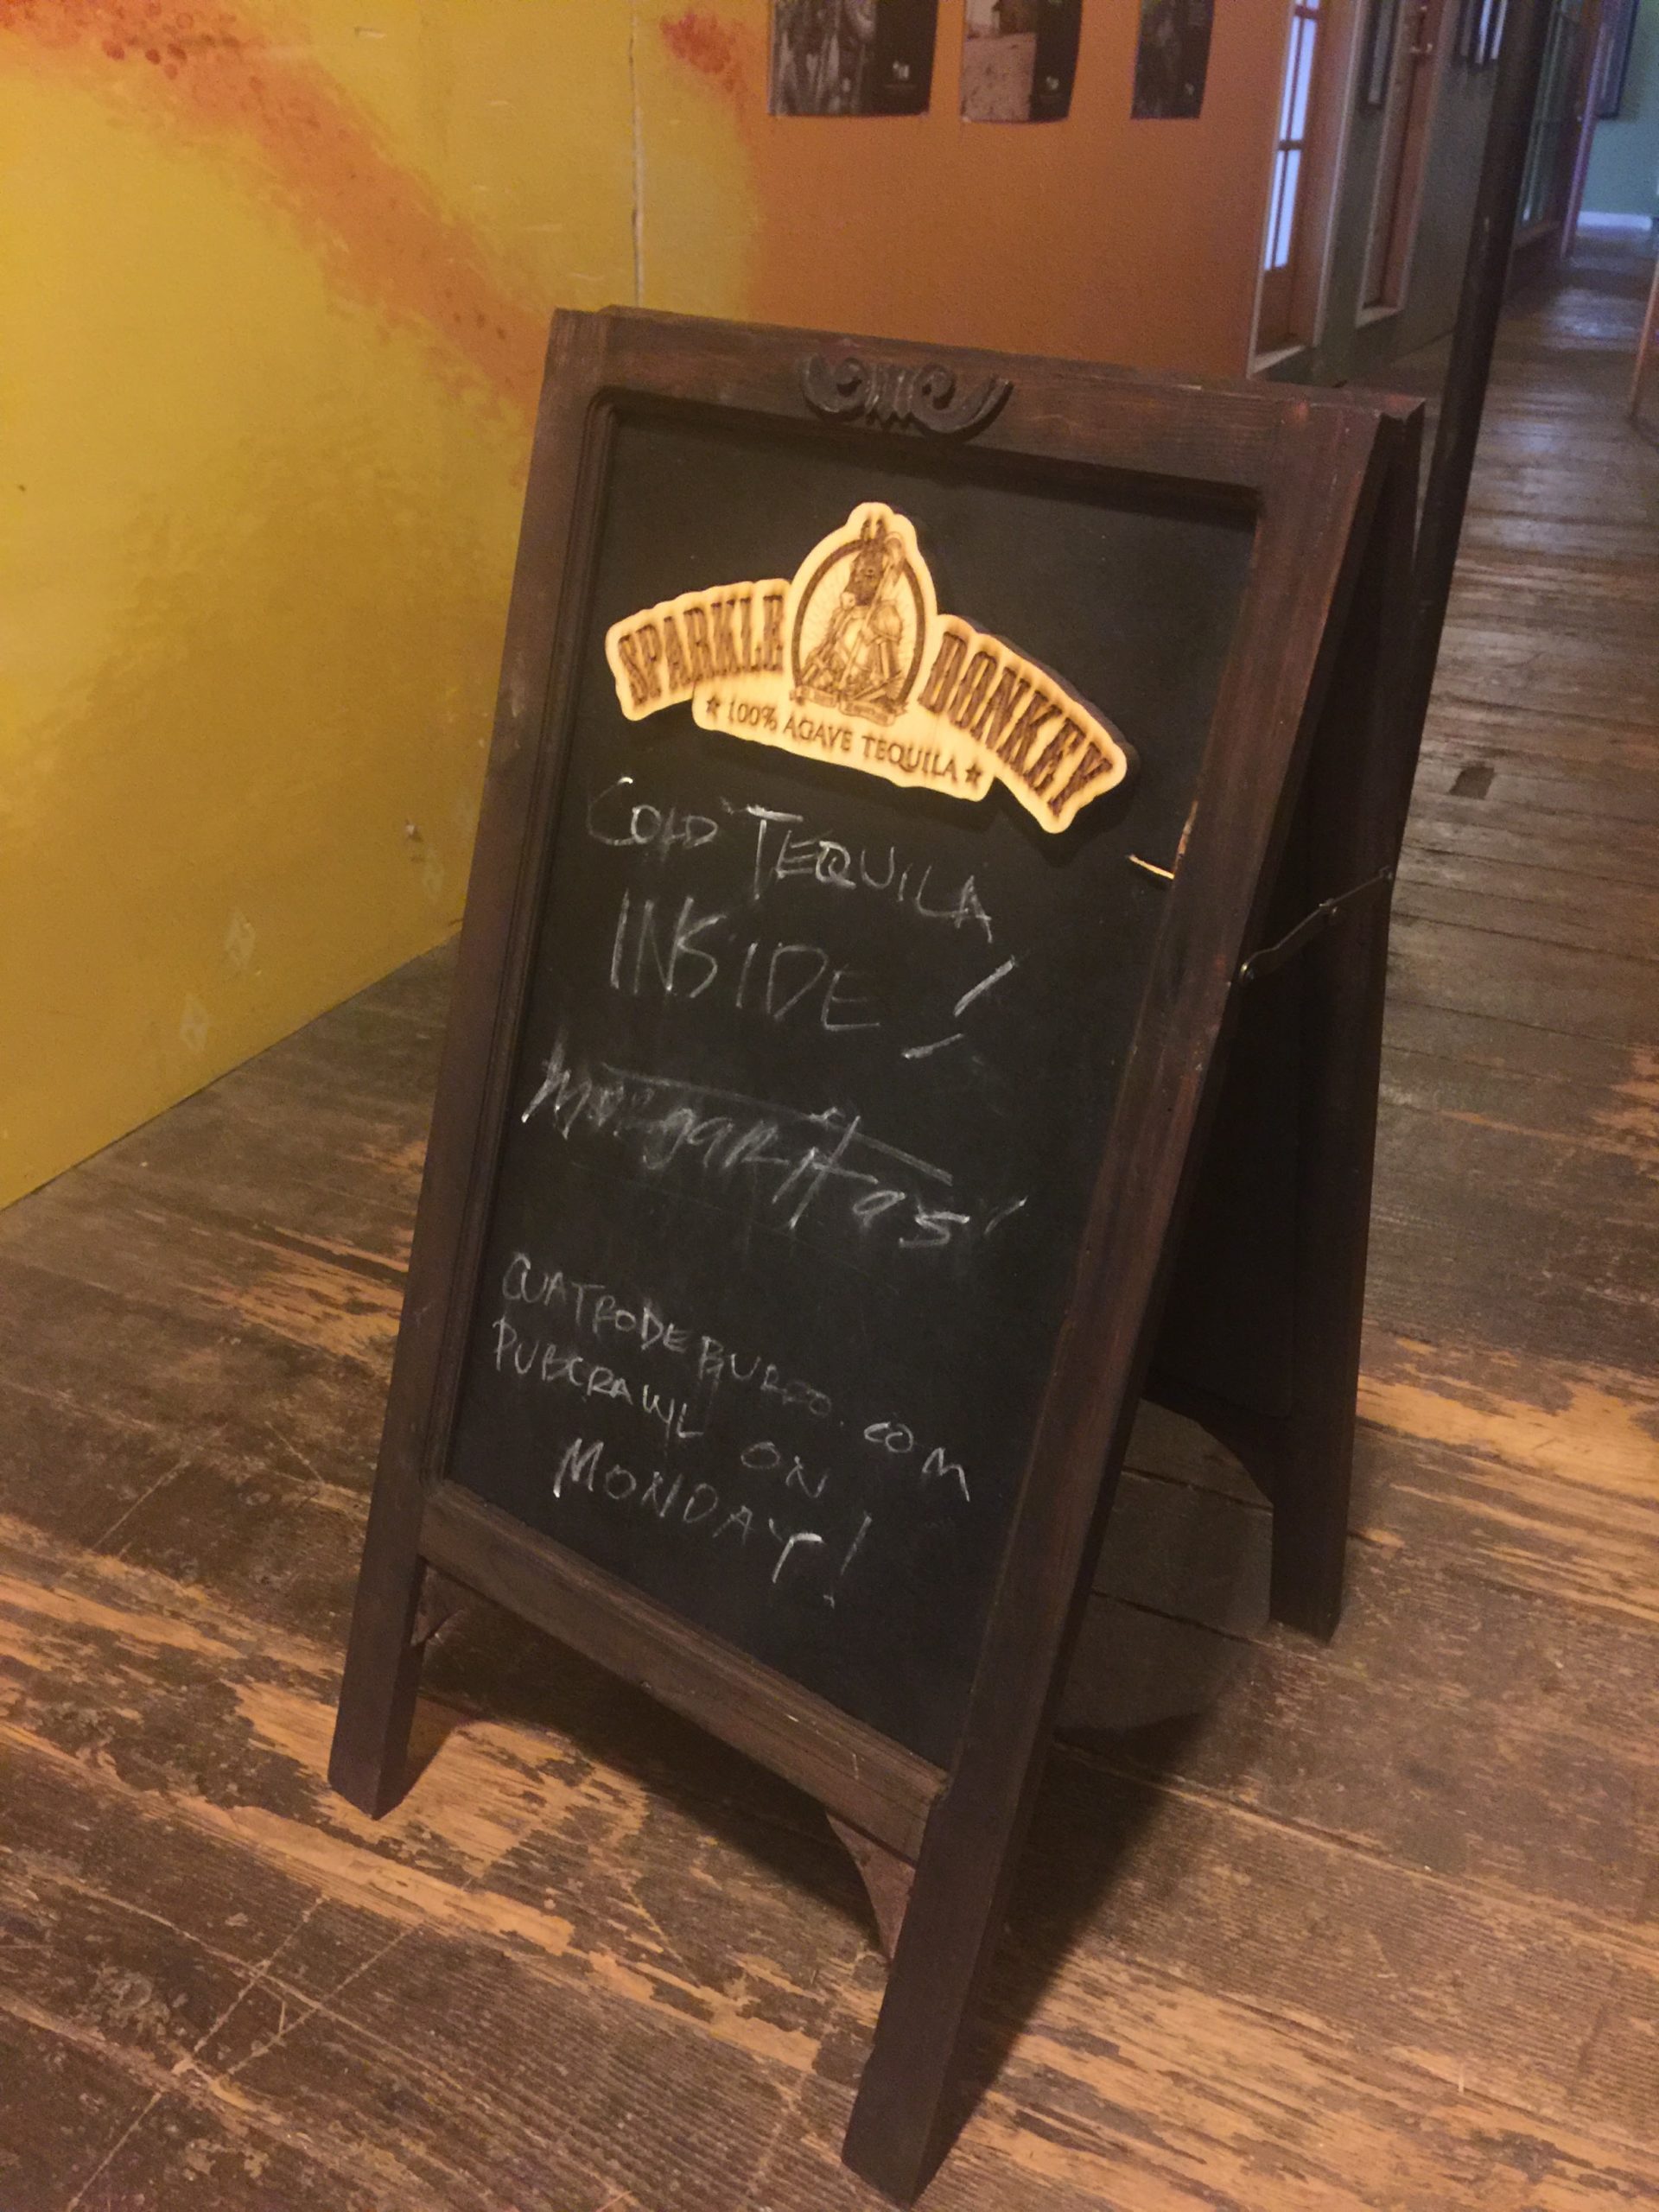 SPARKLE DONKEY
★ 100% AGAVE TEQUILA ★
COLD TEQUILA
INSIDE!
margaritas
CUATRODEBURRO.COM
PUBCRAWL ON
MONDAY!